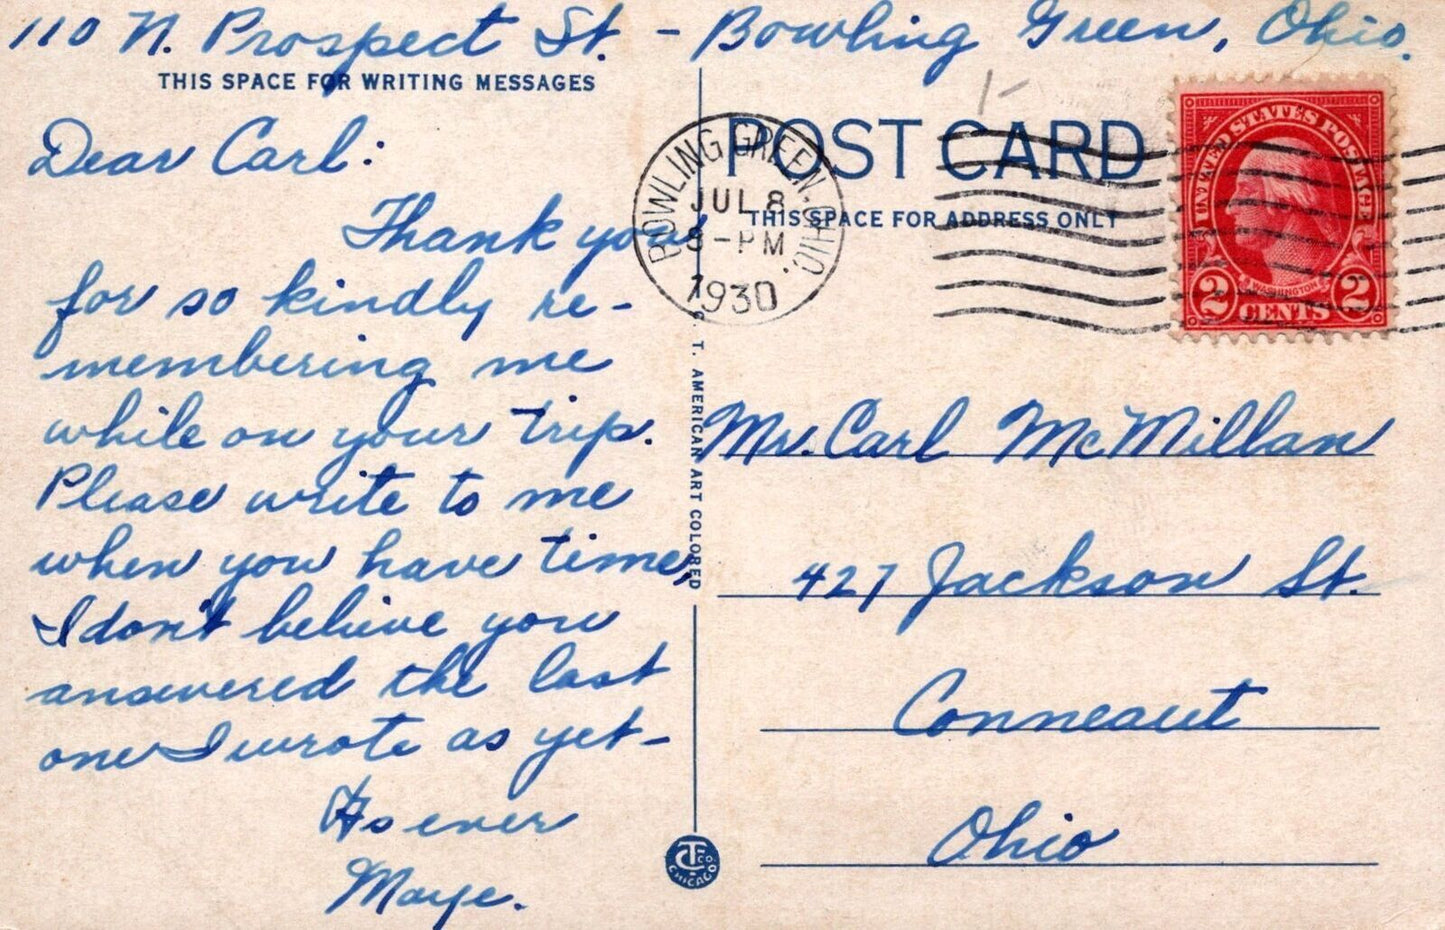 110 N. Prospect St. - Bowling Green, Ohio.
THIS SPACE FOR WRITING MESSAGES
Dear Carl:
Thank you
for so kindly re-
membering me
while on your trip.
Please write to me
when you have time,
I don't believe you
answered the last
one I wrote as yet-
As ever
Maye.
C. T. AMERICAN ART COLORED
CT CO. CHICAGO
POST CARD
THIS SPACE FOR ADDRESS ONLY
BOWLING GREEN, OHIO.
JUL 8
8-PM
1930
UNITED STATES POSTAGE
WASHINGTON
2 CENTS 2
Mr. Carl McMillan
427 Jackson St.
Conneaut
Ohio